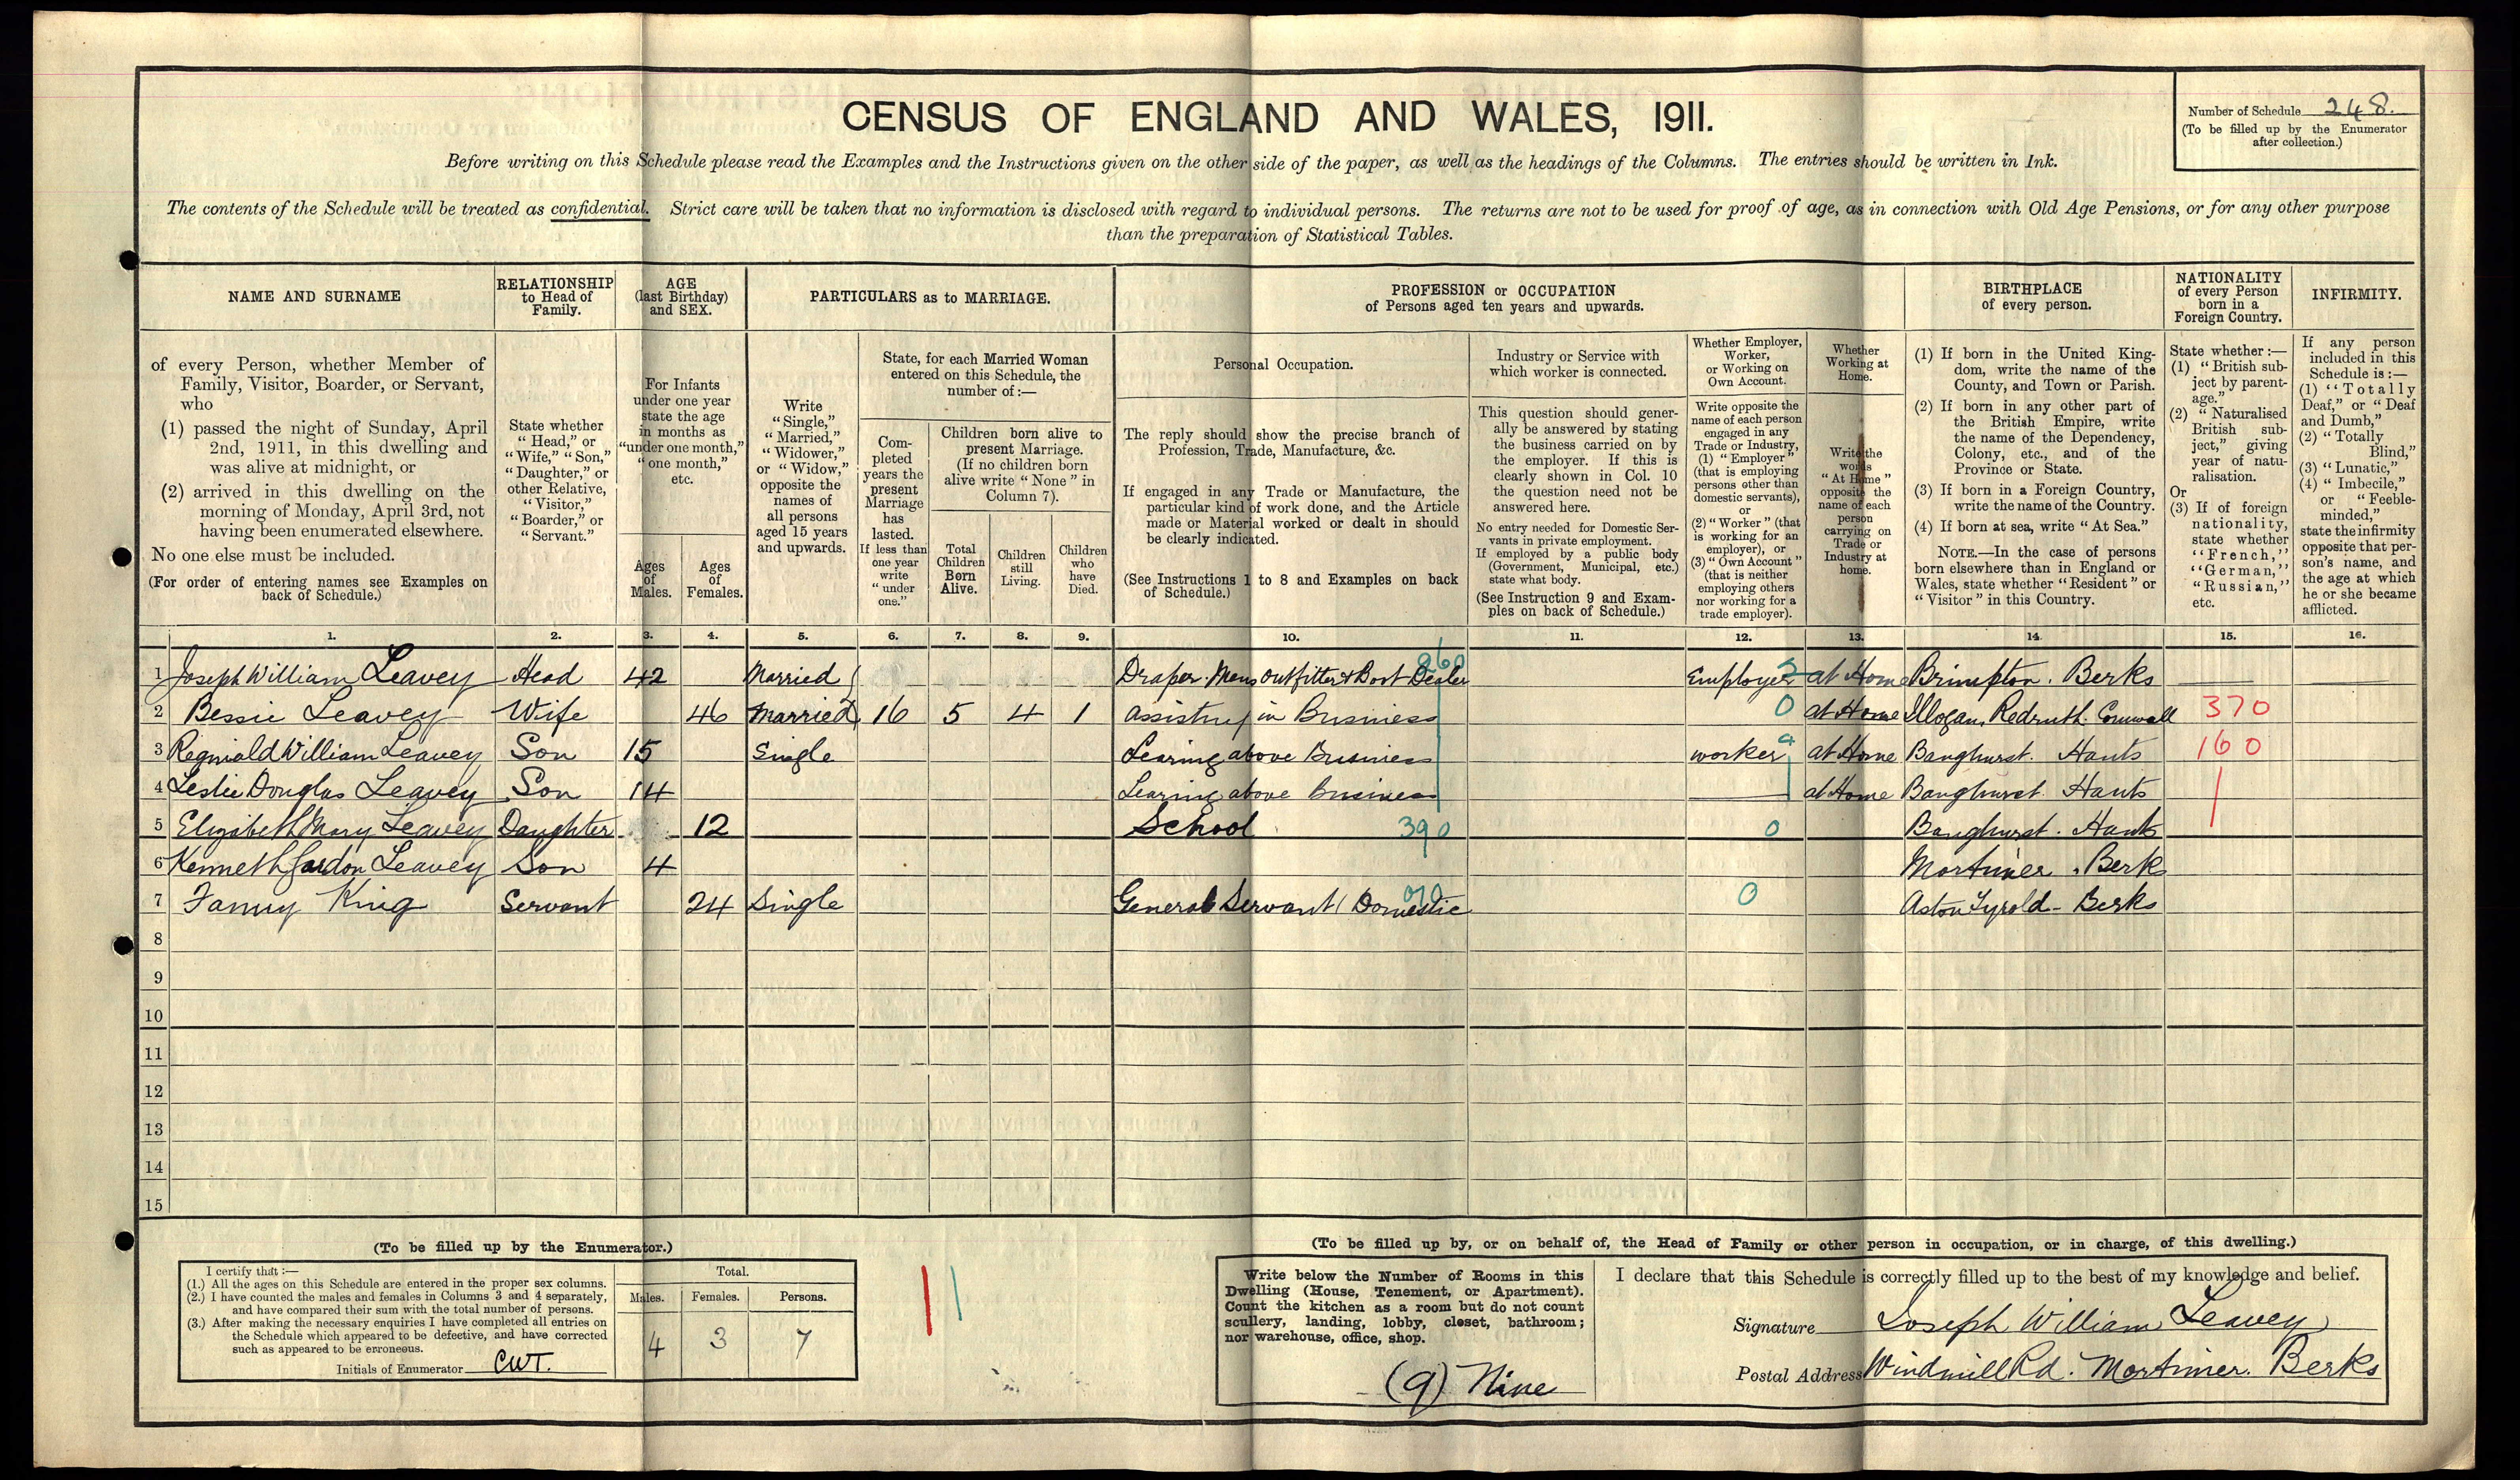 CENSUS OF ENGLAND AND WALES, 1911.
Number of Schedule 248.
(To be filled up by the Enumerator after collection.)
Before writing on this Schedule please read the Examples and the Instructions given on the other side of the paper, as well as the headings of the Columns. The entries should be written in Ink.
The contents of the Schedule will be treated as confidential. Strict care will be taken that no information is disclosed with regard to individual persons. The returns are not to be used for proof of age, as in connection with Old Age Pensions, or for any other purpose
than the preparation of Statistical Tables.
NAME AND SURNAME
RELATIONSHIP to Head of Family.
AGE (last Birthday) and SEX.
PARTICULARS as to MARRIAGE.
PROFESSION or OCCUPATION of Persons aged ten years and upwards.
BIRTHPLACE of every person.
NATIONALITY of every Person born in a Foreign Country.
INFIRMITY.
of every Person, whether Member of Family, Visitor, Boarder, or Servant, who
(1) passed the night of Sunday, April 2nd, 1911, in this dwelling and was alive at midnight, or
(2) arrived in this dwelling on the morning of Monday, April 3rd, not having been enumerated elsewhere.
No one else must be included.
(For order of entering names see Examples on back of Schedule.)
State whether "Head," or "Wife," "Son," "Daughter," or other Relative, "Visitor," "Boarder," or "Servant."
For Infants under one year state the age in months as "under one month," "one month," etc.
Ages of Males.
Ages of Females.
Write "Single," "Married," "Widower," or "Widow," opposite the names of all persons aged 15 years and upwards.
State, for each Married Woman entered on this Schedule, the number of:—
Completed years the present Marriage has lasted. If less than one year write "under one."
Children born alive to present Marriage. (If no children born alive write "None" in Column 7).
Total Children Born Alive.
Children still Living.
Children who have Died.
Personal Occupation.
The reply should show the precise branch of Profession, Trade, Manufacture, &c.
If engaged in any Trade or Manufacture, the particular kind of work done, and the Article made or Material worked or dealt in should be clearly indicated.
(See Instructions 1 to 8 and Examples on back of Schedule.)
Industry or Service with which worker is connected.
This question should generally be answered by stating the business carried on by the employer. If this is clearly shown in Col. 10 the question need not be answered here.
No entry needed for Domestic Servants in private employment.
If employed by a public body (Government, Municipal, etc.) state what body.
(See Instruction 9 and Examples on back of Schedule.)
Whether Employer, Worker, or Working on Own Account.
Write opposite the name of each person engaged in any Trade or Industry, (1) "Employer" (that is employing persons other than domestic servants), or (2) "Worker" (that is working for an employer), or (3) "Own Account" (that is neither employing others nor working for a trade employer).
Whether Working at Home.
Write the words "At Home" opposite the name of each person carrying on Trade or Industry at home.
(1) If born in the United Kingdom, write the name of the County, and Town or Parish.
(2) If born in any other part of the British Empire, write the name of the Dependency, Colony, etc., and of the Province or State.
(3) If born in a Foreign Country, write the name of the Country.
(4) If born at sea, write "At Sea."
NOTE.—In the case of persons born elsewhere than in England or Wales, state whether "Resident" or "Visitor" in this Country.
State whether:—
(1) "British subject by parentage."
(2) "Naturalised British subject," giving year of naturalisation.
Or
(3) If of foreign nationality, state whether "French," "German," "Russian," etc.
If any person included in this Schedule is:—
(1) "Totally Deaf," or "Deaf and Dumb,"
(2) "Totally Blind,"
(3) "Lunatic,"
(4) "Imbecile," or "Feeble-minded,"
state the infirmity opposite that person's name, and the age at which he or she became afflicted.
1. 2. 3. 4. 5. 6. 7. 8. 9. 10. 11. 12. 13. 14. 15. 16.
1 Joseph William Leavey Head 42 Married Draper. Mens outfitter & Boot Dealer 260 Employer 3 at Home Brimpton. Berks
2 Bessie Leavey Wife 46 Married 16 5 4 1 Assisting in Business 0 at Home Illogan, Redruth. Cornwall 370
3 Reginald William Leavey Son 15 Single Learning above Business worker at Home Baughurst. Hants 160
4 Leslie Douglas Leavey Son 14 Learing above Business at Home Baughurst Hants
5 Elizabeth Mary Leavey Daughter 12 School 390 0 Baughurst. Hants
6 Kenneth Gordon Leavey Son 4 Mortimer. Berk
7 Fanny King Servant 24 Single General Servant (Domestic 070 0 Aston Tyrold - Berks
8
9
10
11
12
13
14
15
(To be filled up by the Enumerator.)
I certify that:—
(1.) All the ages on this Schedule are entered in the proper sex columns.
(2.) I have counted the males and females in Columns 3 and 4 separately, and have compared their sum with the total number of persons.
(3.) After making the necessary enquiries I have completed all entries on the Schedule which appeared to be defective, and have corrected such as appeared to be erroneous.
Initials of Enumerator CWT.
Total.
Males. Females. Persons.
4 3 7
(To be filled up by, or on behalf of, the Head of Family or other person in occupation, or in charge, of this dwelling.)
Write below the Number of Rooms in this Dwelling (House, Tenement, or Apartment). Count the kitchen as a room but do not count scullery, landing, lobby, closet, bathroom; nor warehouse, office, shop.
(9) Nine
I declare that this Schedule is correctly filled up to the best of my knowledge and belief.
Signature Joseph William Leavey
Postal Address Windmill Rd. Mortimer. Berks